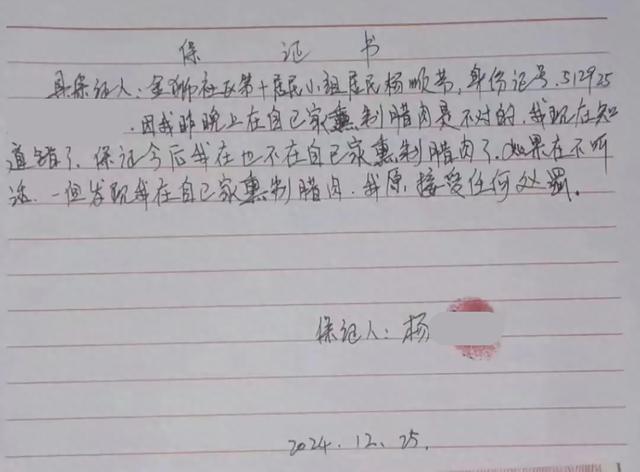 保 证 书
具保证人：金狮社区第十居民小组居民杨顺芬，身份证号.512925
.因我昨晚上在自己家熏制腊肉是不对的.我现在知
道错了.保证今后我在也不在自己家熏制腊肉了.如果在不听
话.一但发现我在自己家熏制腊肉.我原.接受任何处罚。
保证人：杨
2024.12.25.